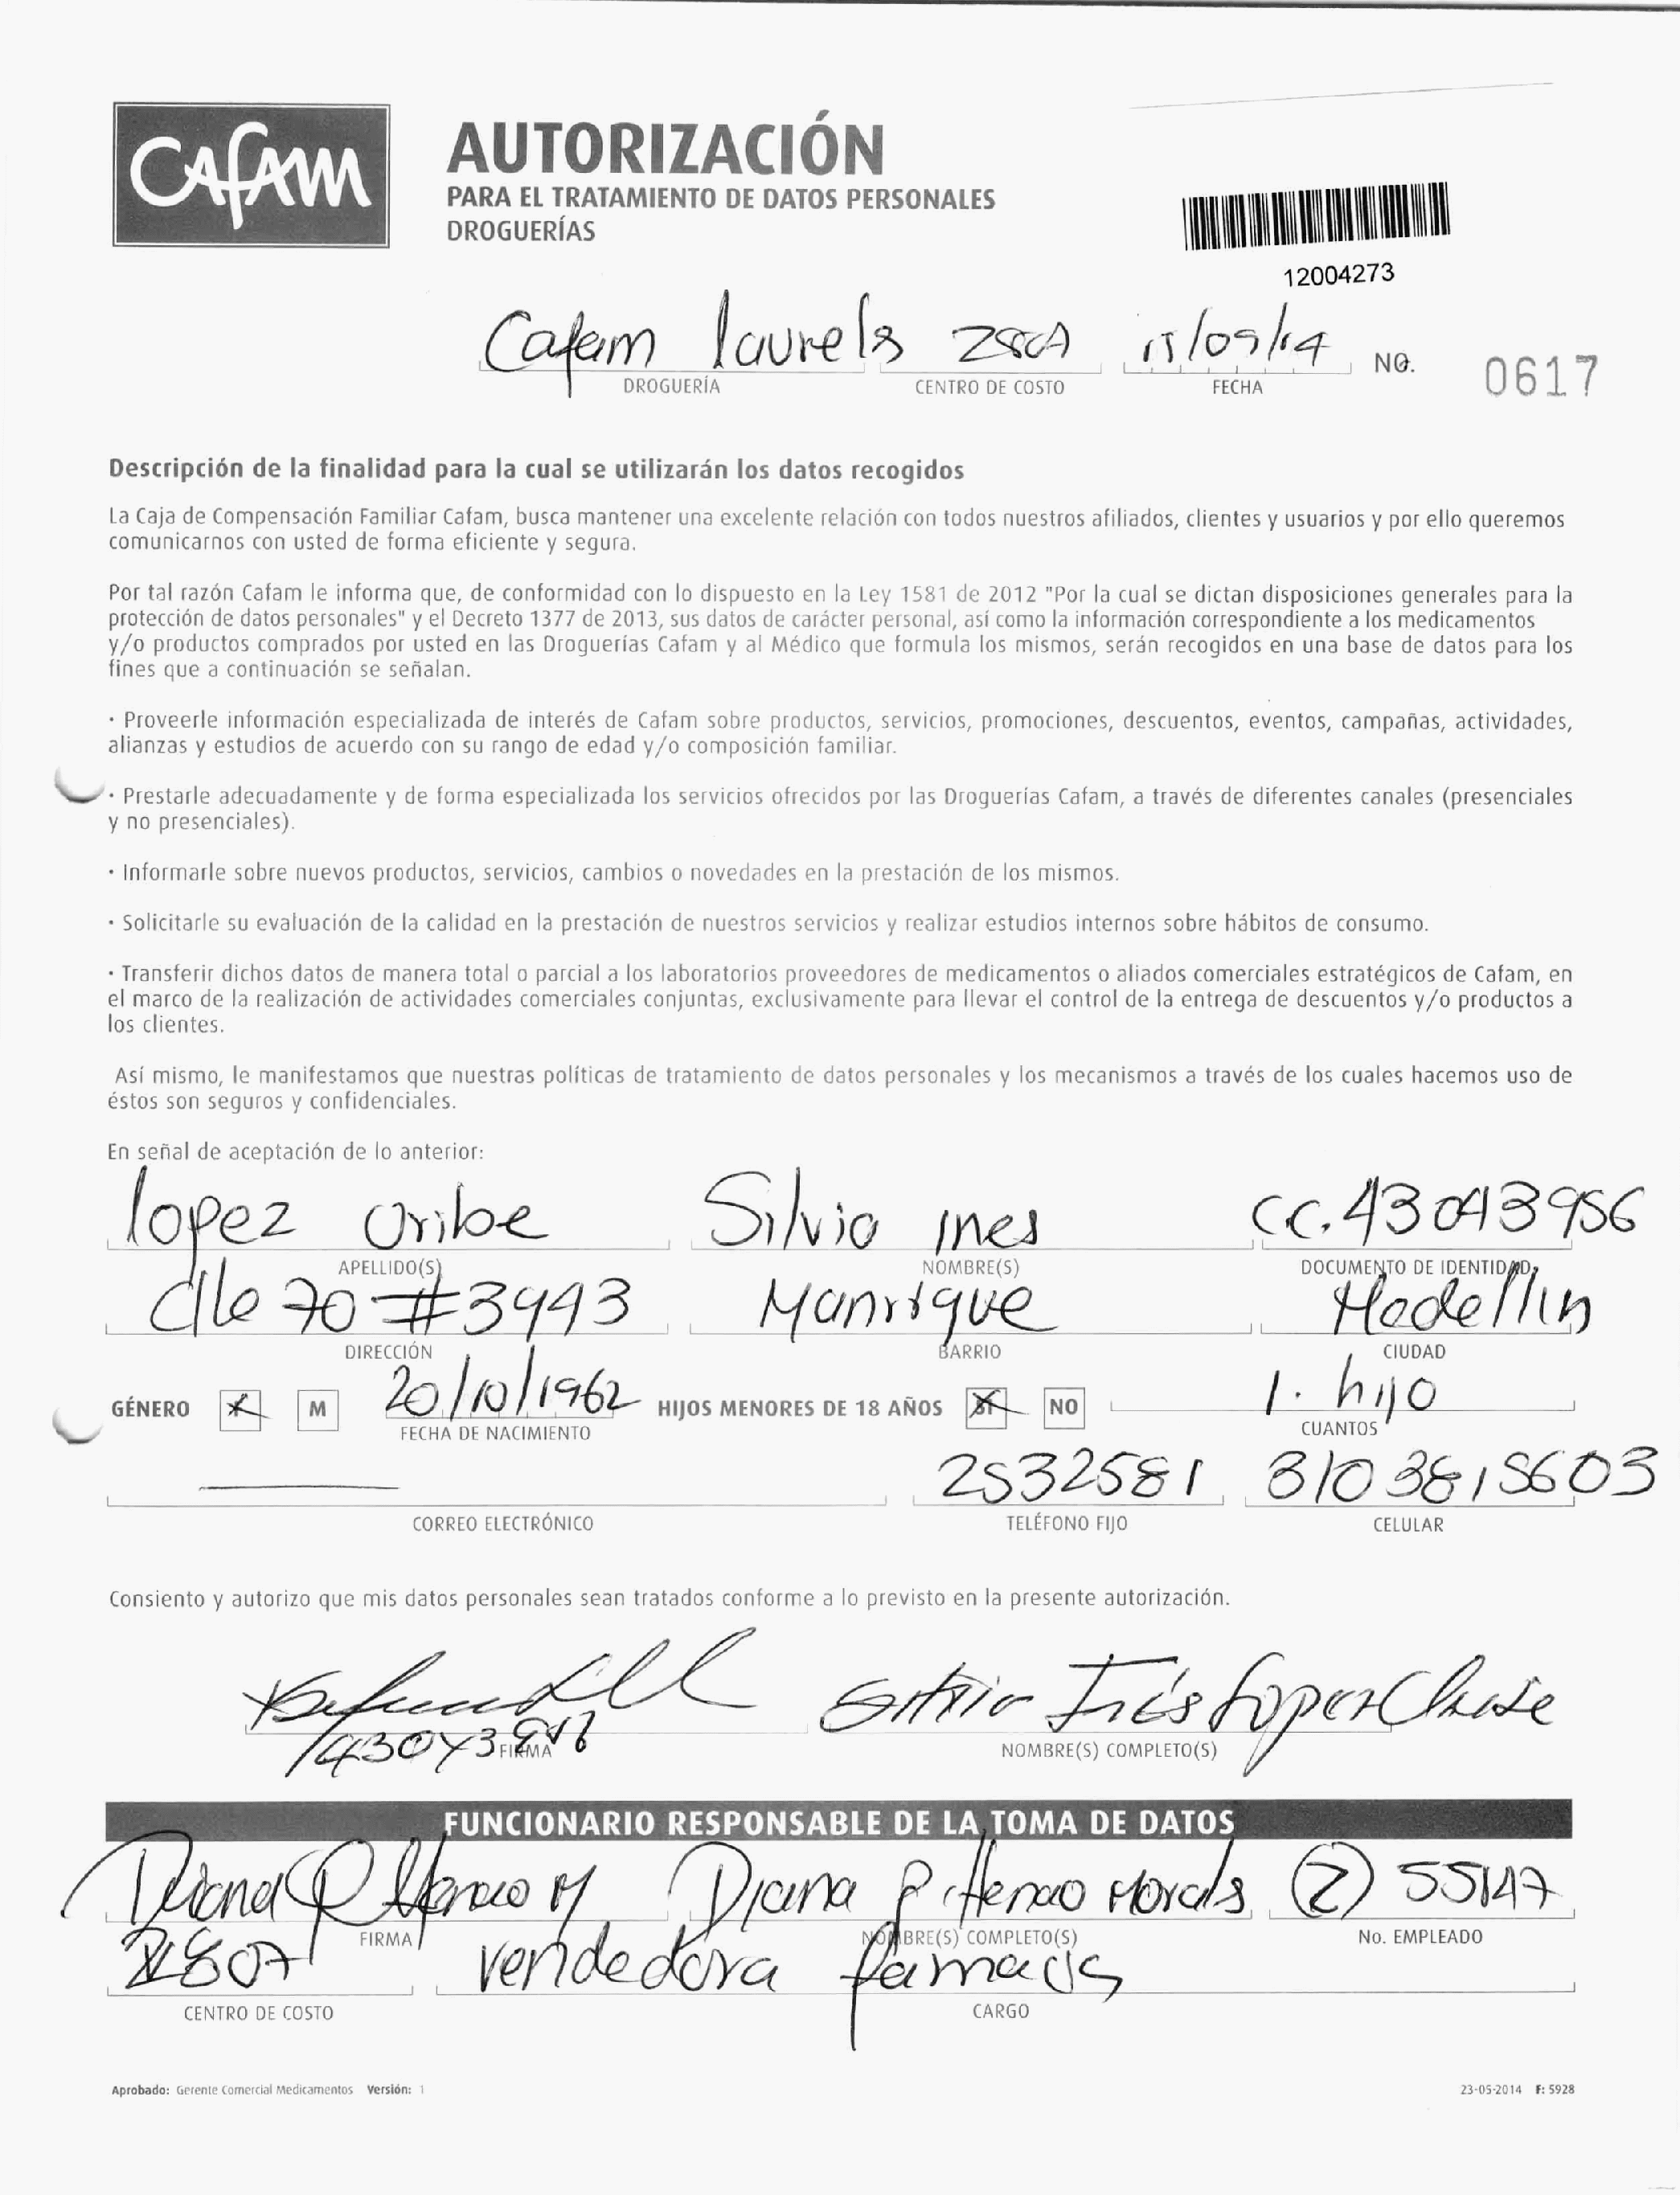 CAFAM
AUTORIZACIÓN
PARA EL TRATAMIENTO DE DATOS PERSONALES
DROGUERÍAS
12004273
Cafam laureles 15/09/14 NO. 0617
DROGUERÍA CENTRO DE COSTO FECHA
Descripción de la finalidad para la cual se utilizarán los datos recogidos
La Caja de Compensación Familiar Cafam, busca mantener una excelente relación con todos nuestros afiliados, clientes y usuarios y por ello queremos
comunicarnos con usted de forma eficiente y segura.
Por tal razón Cafam le informa que, de conformidad con lo dispuesto en la Ley 1581 de 2012 "Por la cual se dictan disposiciones generales para la
protección de datos personales" y el Decreto 1377 de 2013, sus datos de carácter personal, así como la información correspondiente a los medicamentos
y/o productos comprados por usted en las Droguerías Cafam y al Médico que formula los mismos, serán recogidos en una base de datos para los
fines que a continuación se señalan.
· Proveerle información especializada de interés de Cafam sobre productos, servicios, promociones, descuentos, eventos, campañas, actividades,
alianzas y estudios de acuerdo con su rango de edad y/o composición familiar.
· Prestarle adecuadamente y de forma especializada los servicios ofrecidos por las Droguerías Cafam, a través de diferentes canales (presenciales
y no presenciales).
· Informarle sobre nuevos productos, servicios, cambios o novedades en la prestación de los mismos.
· Solicitarle su evaluación de la calidad en la prestación de nuestros servicios y realizar estudios internos sobre hábitos de consumo.
· Transferir dichos datos de manera total o parcial a los laboratorios proveedores de medicamentos o aliados comerciales estratégicos de Cafam, en
el marco de la realización de actividades comerciales conjuntas, exclusivamente para llevar el control de la entrega de descuentos y/o productos a
los clientes.
Así mismo, le manifestamos que nuestras políticas de tratamiento de datos personales y los mecanismos a través de los cuales hacemos uso de
éstos son seguros y confidenciales.
En señal de aceptación de lo anterior:
lopez Uribe Silvia ines cc. 43043956
APELLIDO(S) NOMBRE(S) DOCUMENTO DE IDENTIDAD
clle 70 #3943 Manrique Medellin
DIRECCIÓN BARRIO CIUDAD
GÉNERO M 20/10/1962 HIJOS MENORES DE 18 AÑOS SI NO 1. hijo
FECHA DE NACIMIENTO CUANTOS
2532581 3103815603
CORREO ELECTRÓNICO TELÉFONO FIJO CELULAR
Consiento y autorizo que mis datos personales sean tratados conforme a lo previsto en la presente autorización.
Inés
FIRMA NOMBRE(S) COMPLETO(S)
FUNCIONARIO RESPONSABLE DE LA TOMA DE DATOS
Diana P Henao M Diana P. Henao Morales 2 55147
FIRMA NOMBRE(S) COMPLETO(S) No. EMPLEADO
vendedora
CENTRO DE COSTO CARGO
Aprobado: Gerente Comercial Medicamentos Versión: 1 23-05-2014 F: 5928